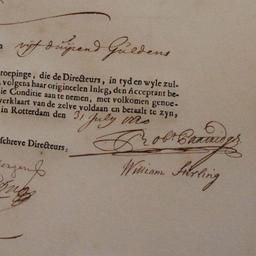 vijf duijsend Guldens
roepinge, die de Directeurs, in tyd en wyle zul-
volgens haar origineelen Inleg, den Acceptant be-
ie Conditie aan te nemen, met volkomen genoe-
verklaart van de zelve voldaan en betaalt te zyn,
in Rotterdam den 31 July 1720
schreve Directeurs,
Robt
William Stirling